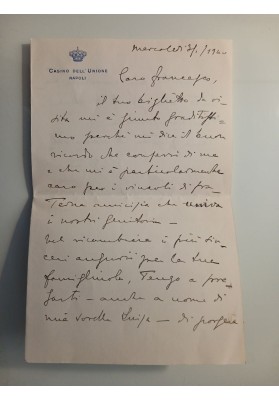 CASINO DELL'UNIONE
NAPOLI
mercoledì 7/1/1920
Caro Francesco,
il tuo biglietto da vi-
sita mi è giunto graditissi-
mo perché mi dice il buon
ricordo che conservi di me
e che mi è particolarmente
caro per i vincoli di fra-
terna amicizia che univa
i nostri genitori –
Nel ricambiare i più sin-
ceri auguri per la tua
famigliuola, Tengo a pre-
garti – anche a nome di
mia sorella Luisa – di porgere